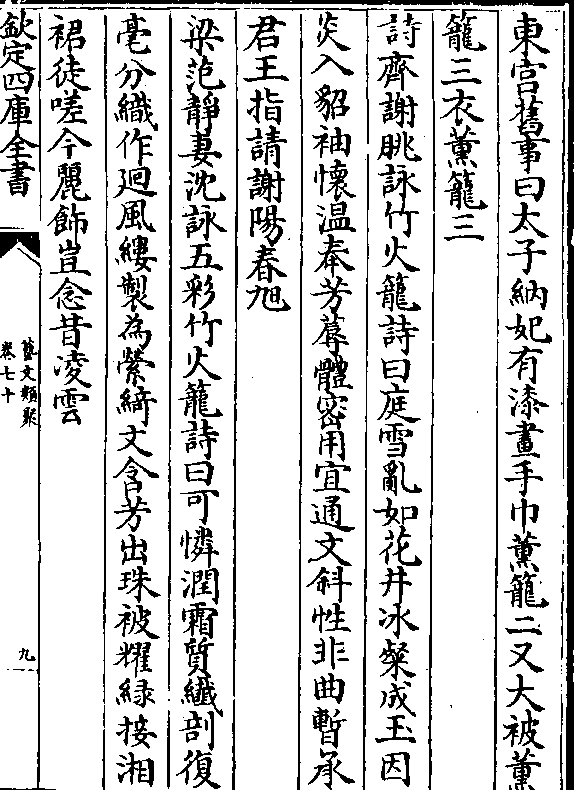 東宫舊事曰太子納妃有漆畫手巾薰籠二又大被薰
籠三衣薰籠三
詩齊謝朓詠竹火籠詩曰庭雪亂如花井冰粲成玉因
炎入貂袖懷温奉芳蓐體密用宜通文斜性非曲暫承
君王指請謝陽春旭
梁范靜妻沈詠五彩竹火籠詩曰可憐潤霜質纖剖復
毫分織作迴風縷製為縈綺文含芳出珠被耀緑接湘
裙徒嗟今麗飾豈念昔凌雲
欽定四庫全書
藝文類聚
卷七十
九